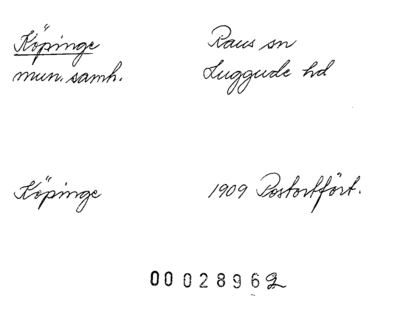 Köpinge Raus sn
mun. samh. Luggude hd
Köpinge 1909 Postortfört.
00028962